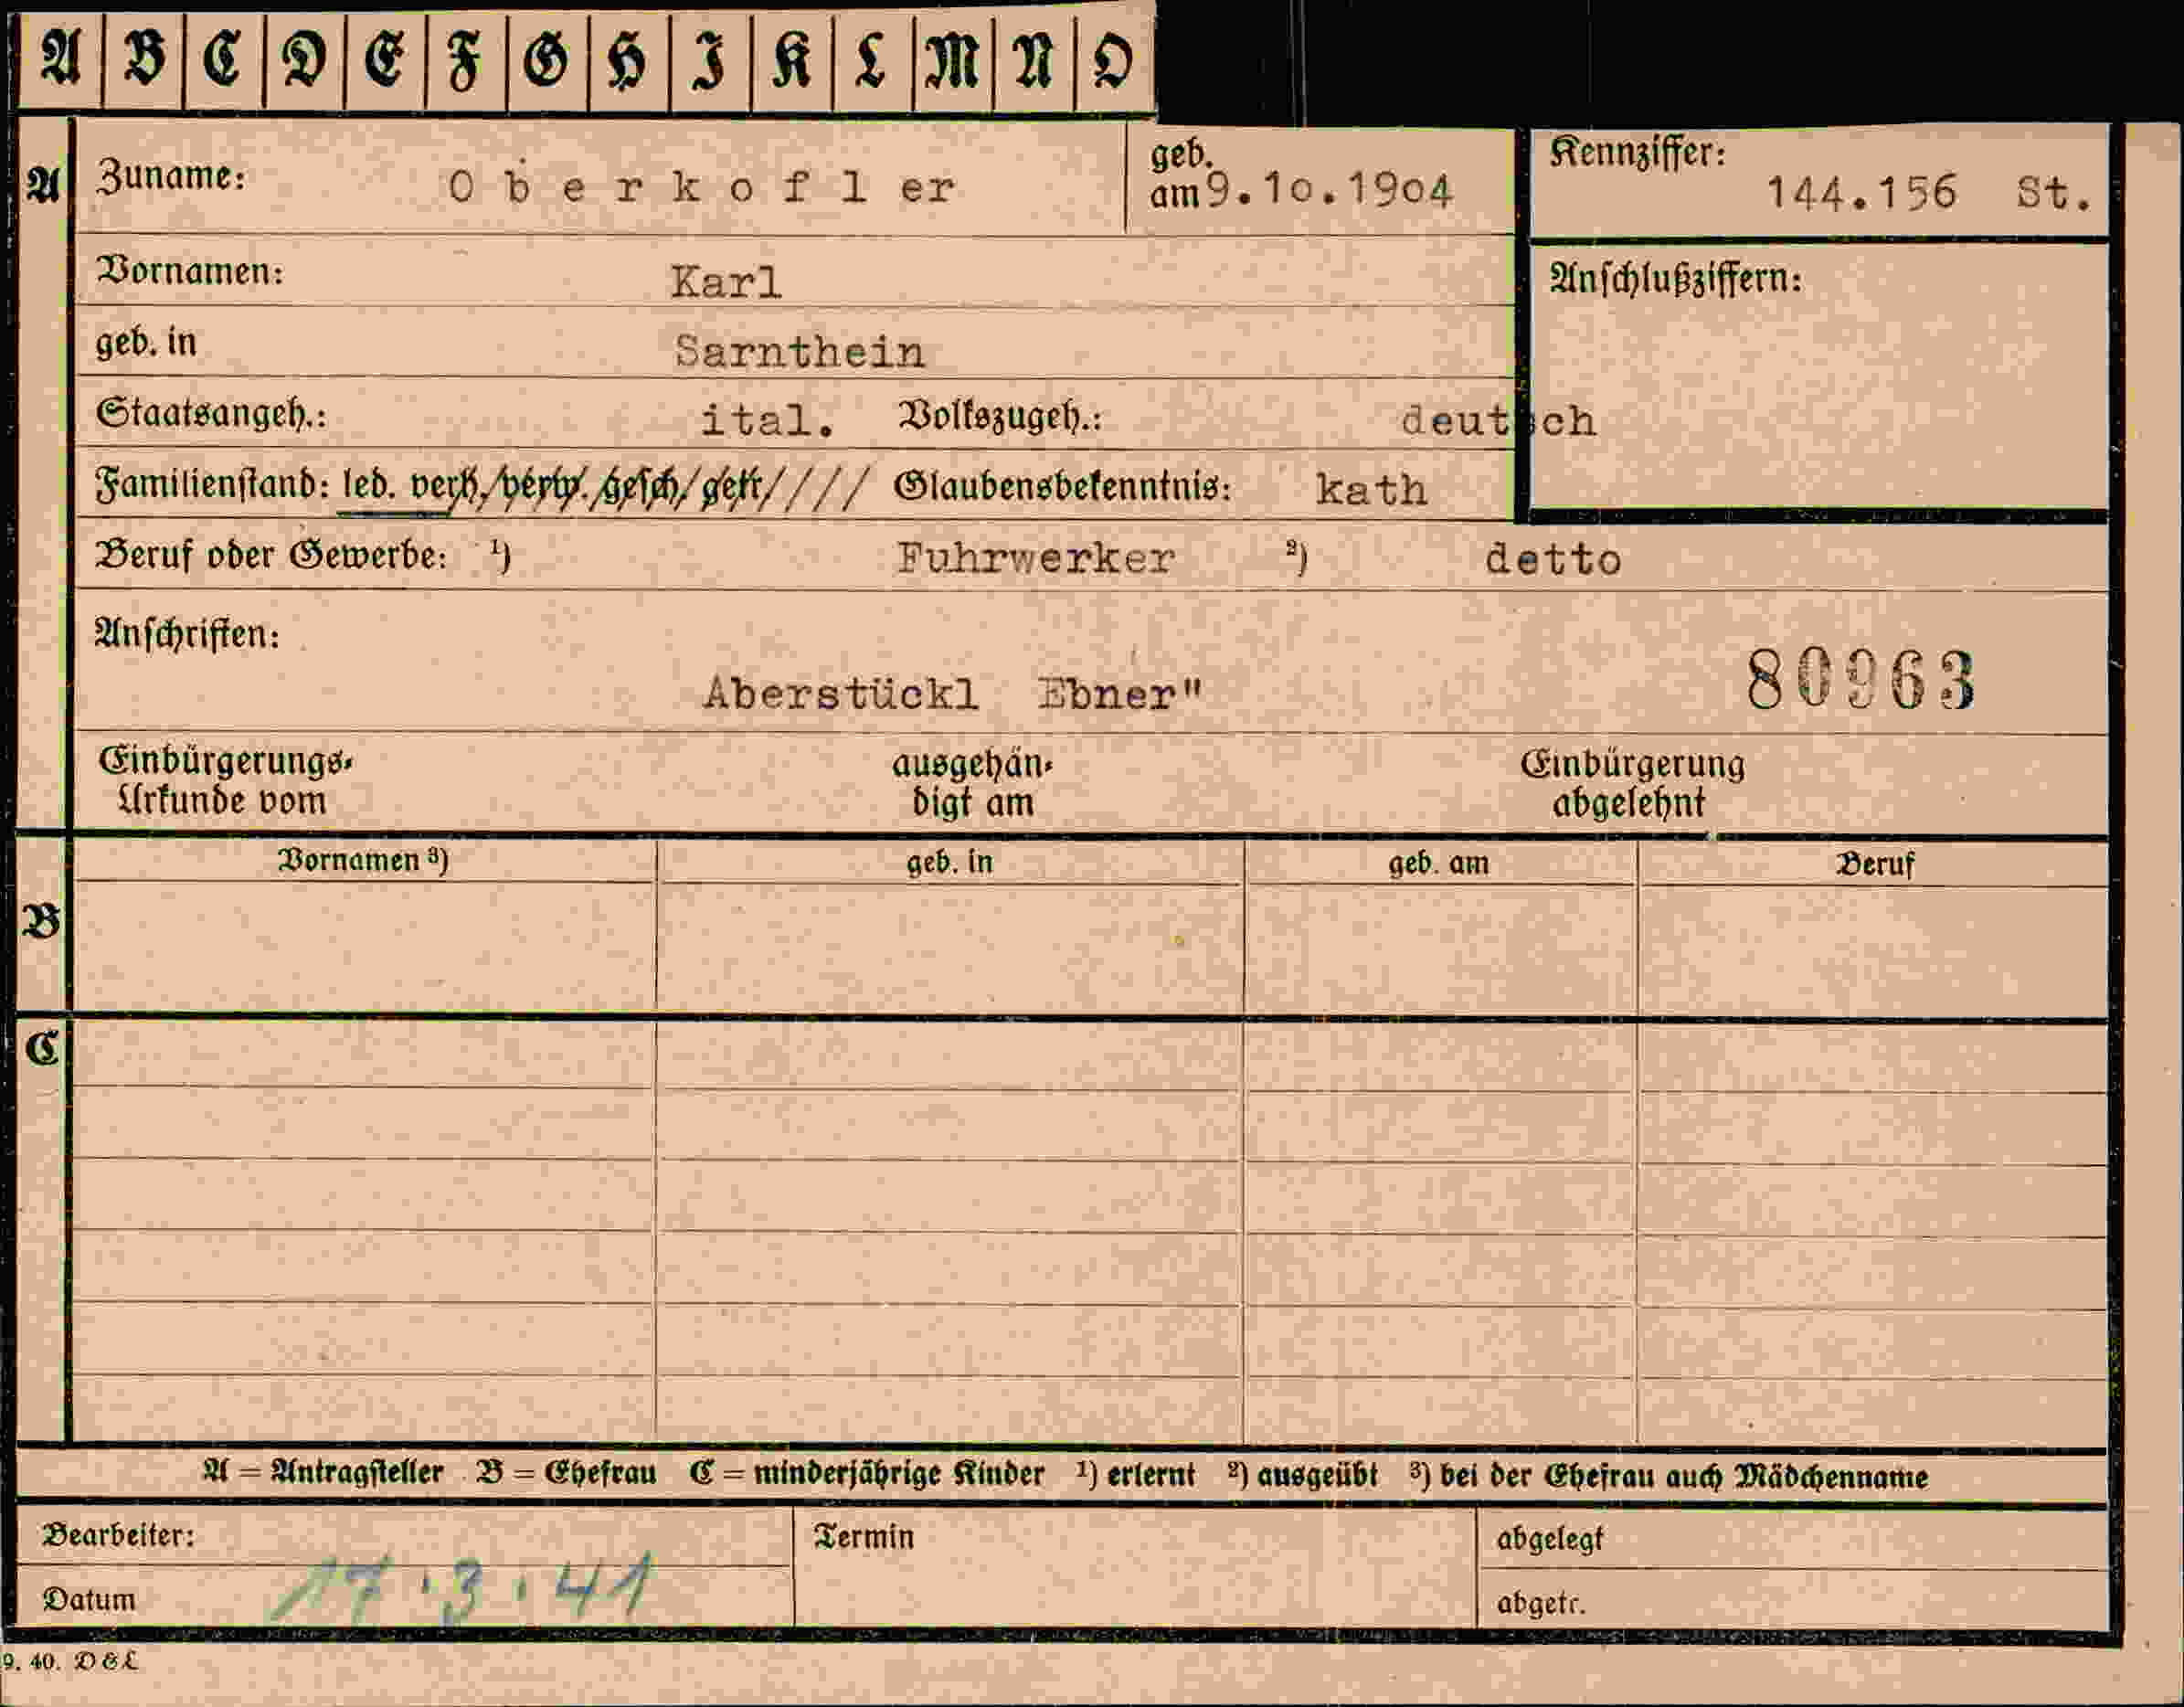 A B C D E F G H I K L M N O
A Zuname: Oberkofler geb. am 9.10.1904 Kennziffer: 144.156 St.
Vornamen: Karl Anschlußziffern:
geb. in Sarnthein
Staatsangeh.: ital. Volkszugeh.: deutsch
Familienstand: led. verh. verw. gesch. getr. //// Glaubensbekenntnis: kath
Beruf oder Gewerbe: ¹) Fuhrwerker ²) detto
Anschriften:
Aberstückl Ebner" 80963
Einbürgerungs-Urkunde vom ausgehändigt am Einbürgerung abgelehnt
Vornamen ³) geb. in geb. am Beruf
B
C
A = Antragsteller B = Ehefrau C = minderjährige Kinder ¹) erlernt ²) ausgeübt ³) bei der Ehefrau auch Mädchenname
Bearbeiter: Termin abgelegt
Datum 17.3.41 abgetr.
9. 40. D & L